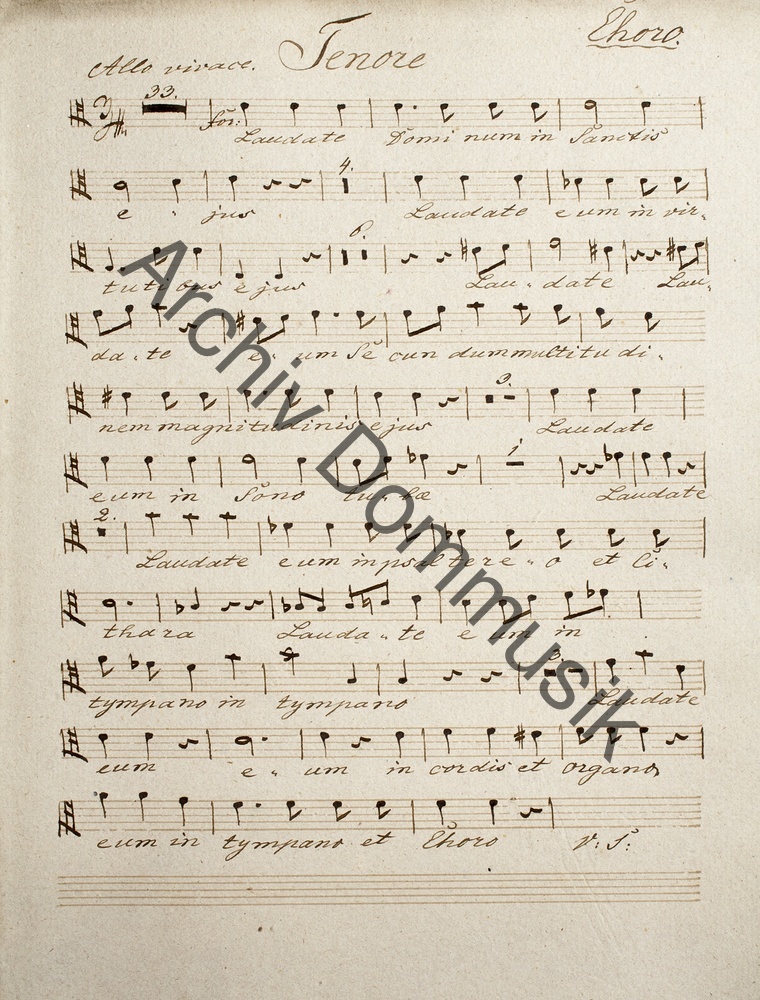 Choro.
Allo vivace. Tenore
33.
for:
Laudate Domi num in Sanctis
4.
e " jus Laudate eum in vir"
6.
tuti bus ejus Lau " date Lau"
da " te e " um Se cun dum multitu di "
3.
nem magnitudinis ejus Laudate
1
eum in Sono tu " bæ Laudate
2.
Laudate eum in psaltere " o et Ci "
thara Lauda " te e um in
3.
tympano in tympano Laudate
eum e " um in cordis et organo
eum in tympano et Choro V: S:
Archiv Dommusik